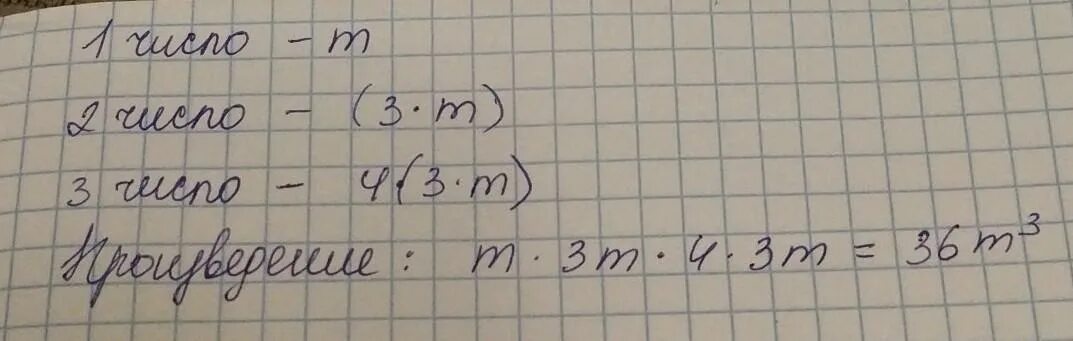 1 число - m
2 число - (3·m)
3 число - 4(3·m)
Произведение: m·3m·4·3m = 36m³